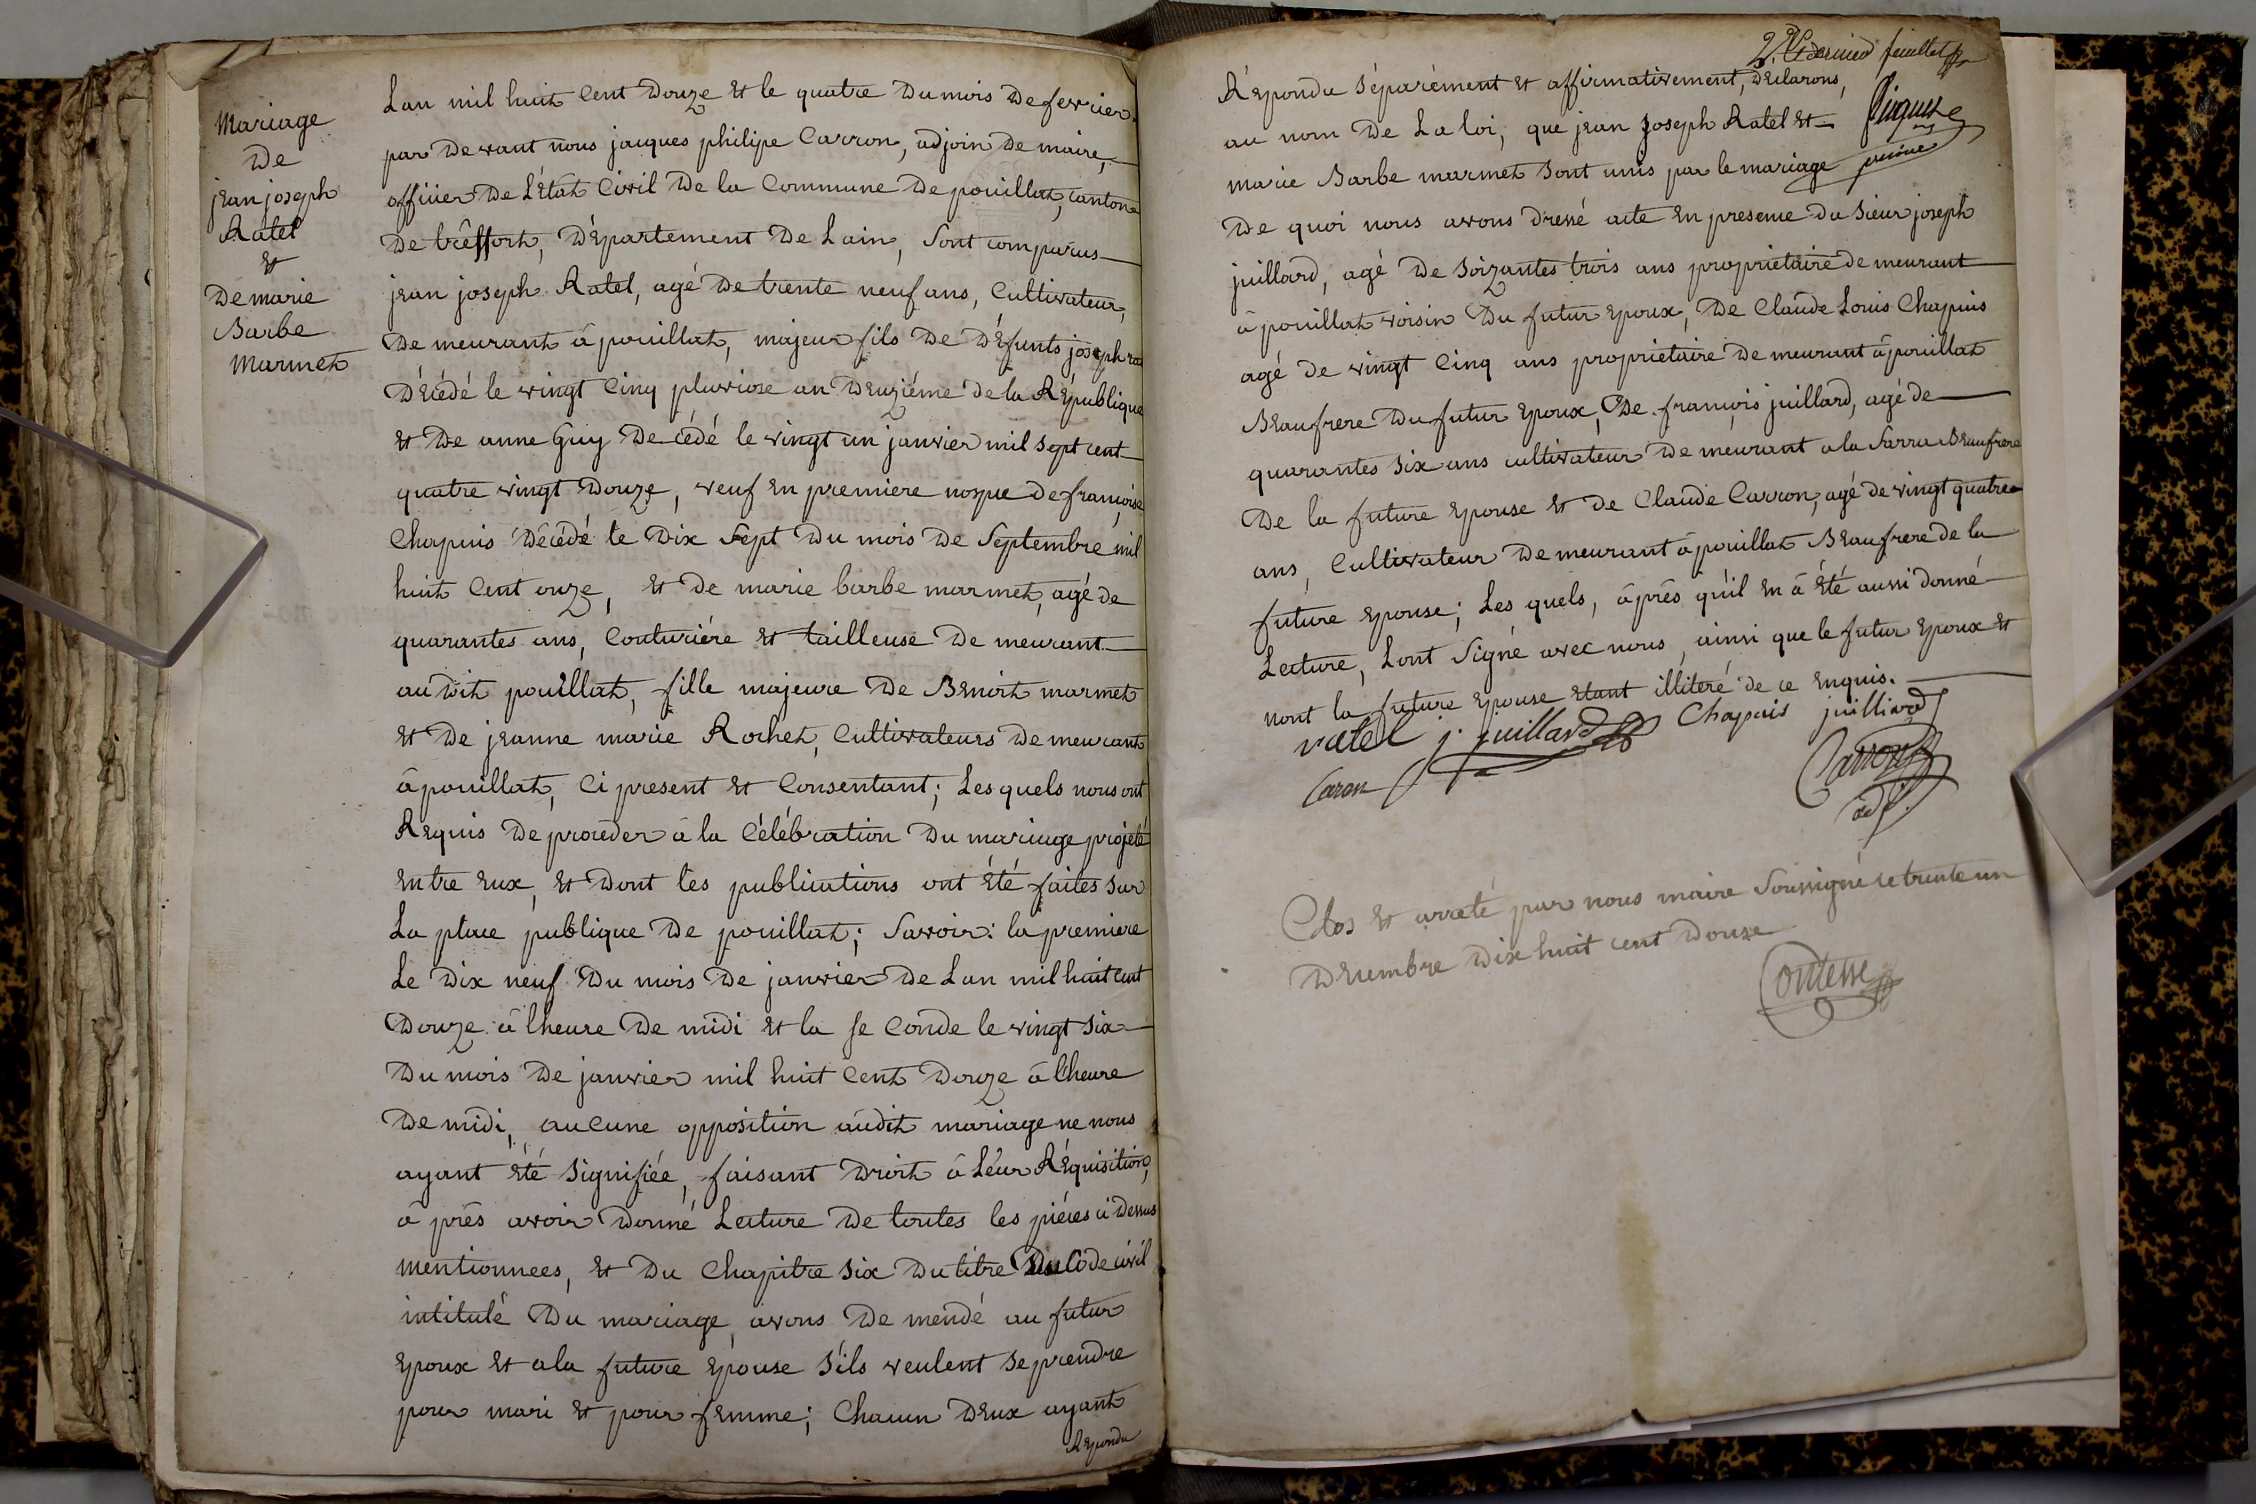 Mariage
De
jean joseph
Ratel
Et
De marie
Barbe
Marmet
Lan mil huit Cent Douze Et le quatre Du mois De fevrier
par De vant nous jacques philipe Carron, adjoin De maire,
officier De L'Etat Civil De la Commune De pouillat, canton
De trêffort, Département De Lain, Sont comparus
jean joseph Ratel, agé De trente neuf ans, Cultivateur,
De meurant â pouillat, majeur fils De Défunts joseph ra
Décédé le vingt Cinq pluviose an Deuziéme de la République
Et De anne Guy De cédé le vingt un janvier mil Sept cent
quatre vingt Douze, veuf En premiere nospe De françoise
Chapuis Décédé le Dix Sept Du mois De Septembre mil
huit Cent onze, Et De marie barbe marmet, agé de
quarantes ans, Couturiére Et tailleuse De meurant
au Dit pouillat, fille majeure De Benoit marmet
Et De jeanne marie Rochet, Cultivateurs De meurant
â pouillat, Ci present Et Consentant; Les quels nous ont
Requis De proceder â la Célébration Du mariage projeté
Entre Eux, Et Dont les publications ont Eté faites Sur
La place publique De pouillat; Savoir: la premiere
Le Dix neuf Du mois De janvier De Lan mil huit cent
Douze â lheure De midi Et la Se Conde le vingt Six
Du mois De janvier mil huit Cent Douze â lheure
De midi, auCune opposition audit mariage ne nous
ayant Eté Signifiée, faisant Droit â Leur Réquisition,
â prés avoir Donné Lecture De toutes les piéces ci Dessus
mentionnees, Et Du Chapitre Six Du titre Du Code civil
intitulé Du mariage, avons De mendé au futur
Epoux Et a la future Epouse S'ils veulent Se prendre
pour mari Et pour femme; Chacun D'Eux ayant
Repondu
2.e & dernier feuillet
Répondu Séparément Et affirmativement, Declarons,
au nom De La loi, que jean joseph Ratel Et
marie Barbe marmet Sont unis par le mariage
De quoi nous avons Dressé acte En presence Du Sieur joseph
juillard, agé De Soizantes trois ans proprietaire De meurant
â pouillat voisin Du futur Epoux, De Claude Louis Chapuis
agé de vingt Cinq ans proprietaire De meurant â pouillat
Beaufrere Du futur Epoux, De françois juillard, agé de
quarantes Six ans cultivateur De meurant a la Sarra Beaufrere
De la future Epouse Et de Claude Carron, agé de vingt quatre
ans, Cultivateur De meurant â pouillat Beaufrere de la
future Epouse; Les quels, âprês qu'il En â Eté aussi donné
Lecture, Lont Signé avec nous, ainsi que le futur Epoux Et
nont la future Epouse Etant illiteré de ce Enquis.
ratel j. juillard Chapuis juilliard
Caron Carron
adj.
Clos Et arreté par nous maire Soussigné le trente un
Decembre Dix huit cent Douze
Contesse